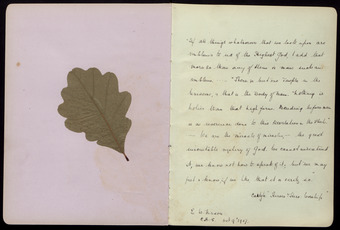 "If all things whatsoever that we look upon are
emblems to us of the Highest God, I add that
more so than any of them is man such an
emblem — "There is but one Temple in the
Universe, & that is the Body of Man. Nothing is
holier than that high form. Bending before men
is a reverence done to this Revelation in the Flesh"
— We are the miracle of miracles — the great
inscrutable mystery of God. We cannot understand
it, we know not how to speak of it, but we may
feel & know, if we like that it is verily so."
Carlyle "Heroes & Hero Worship"